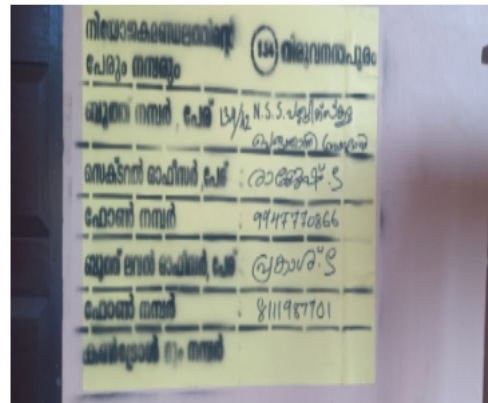 നിയോജകമണ്ഡലത്തിന്റെ 134 തിരുവനന്തപുരം
പേരും നമ്പരും
ബൂത്ത് നമ്പർ, പേര് 134/42 N.S.S. പബ്ലിക്സ്കൂൾ
സെക്ടറൽ ഓഫീസർ, പേര് : രാജേഷ്. S
ഫോൺ നമ്പർ : 9947770866
ബൂത്ത് ലവൽ ഓഫീസർ, പേര് : പ്രകാശ്. S
ഫോൺ നമ്പർ : 8111987701
കൺട്രോൾ റൂം നമ്പർ